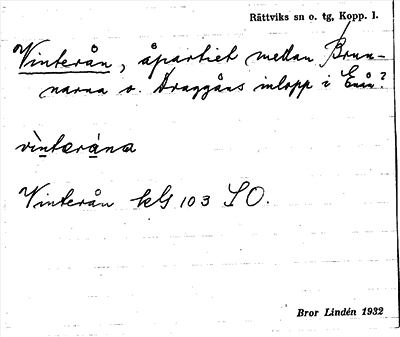 Rättviks sn o. tg, Kopp. l.
Vinterån, åpartiet mellan Brun-
narna o. Draggåns inlopp i Enån?
vìntærána
Vinterån kbl 103 SO.
Bror Lindén 1932